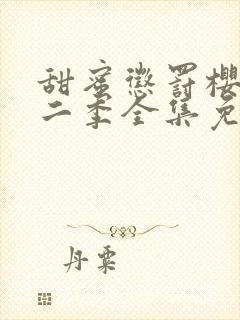 甜蜜惩罚樱
二季全集免
丹粟